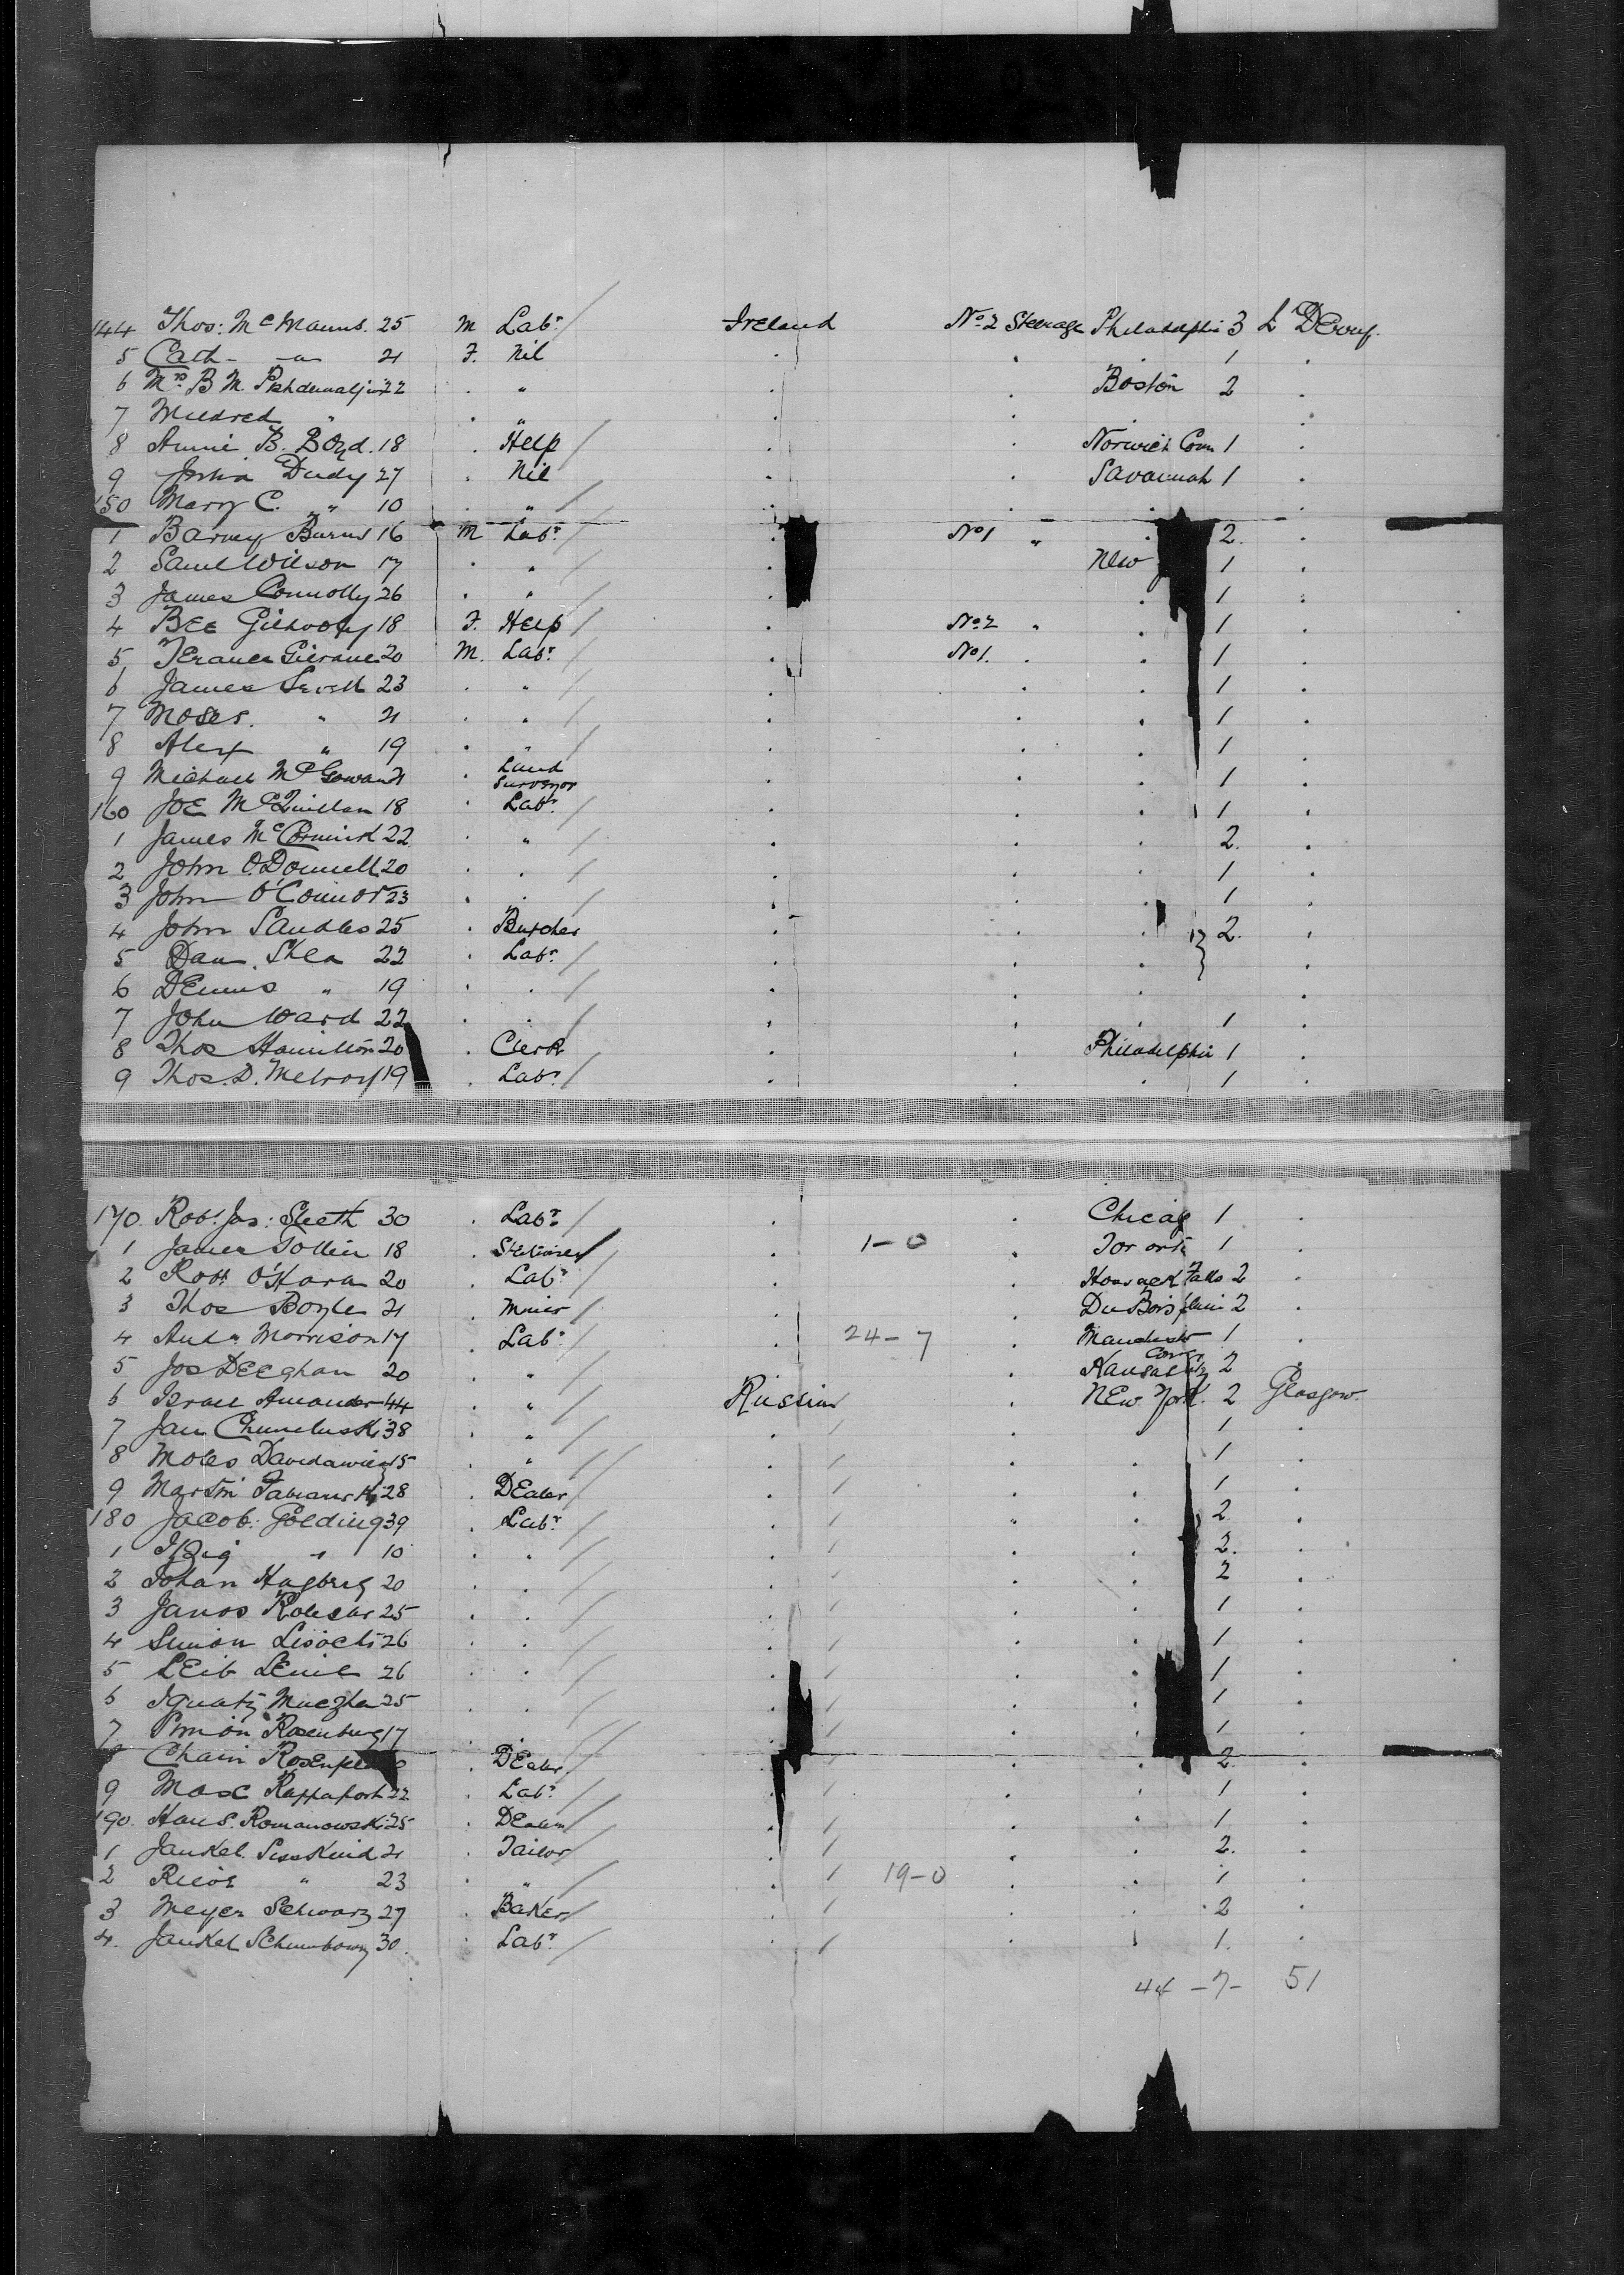 144 Thos: McManus. 25 M Labr Ireland No 2 Steerage Philadelphi 3 L'Derry.
5 Cath - " - 21 F. Nil . . . 1 .
6 Mrs B M. 22 . " . . Boston 2 .
7 Mildred " . " . . . .
8 Annie B. Boyd. 18 . Help . . Norwich Conn 1 .
9 Dudy 27 . Nil . . Savannah 1 .
150 Mary C. " 10 . " . . . .
1 Barney Burns 16 M Labr . No 1 " . 2. .
2 Saml Wilson 17 . " . New 1 .
3 James Connolly 26 . " . . 1 .
4 Bee Gilhooly 18 F. Help . No 2 " . 1 .
5 Terance Gilrane 20 M. Labr . No 1. . . 1 .
6 James 23 . " . . . 1 .
7 Moses. " 21 . " . . . 1 .
8 Alex " 19 . " . . . 1 .
9 Michael McGowan 21 . Land Surveyor . . . 1 .
160 Joe McQuillan 18 . Labr . . . 1 .
1 James McCormick 22 . " . . . 2. .
2 John O'Donnell 20 . . . . . 1 .
3 John O'Connor 23 . . . . . 1 .
4 John Sandles 25 . Butcher . . . 2. .
5 Dan. Shea 22 . Labr . . . .
6 Dennis " 19 . . . . . .
7 John Ward 22 . . . . . 1 .
8 Thos Hamilton 20 . Clerk . . Philadelphia 1 .
9 Thos. D. Melroy 19 . Labr . . . 1 .
170. Robt Jas: 30 . Labr . . Chicag 1 .
1 James 18 . . 1-0 . Toronto 1 .
2 Robt O'Hara 20 . Labr . . Falls 2 .
3 Thos Boyle 21 . Miner . . Du Bois 2 .
4 Andw Morrison 17 . Labr . 24-7 . 1 .
5 Jos Deeghan 20 . " . . Kansas City 2 .
6 Israel 44 . " Russian . New York. 2 Glasgow.
7 Jan 38 . " . . . 1 .
8 15 . " . . . 1 .
9 Martin 28 . Dealer . . . 1 .
180 Jacob. Golding 39 . Labr . " . 2. .
1 Itzig " 10 . " . . . 2. .
2 Johan Hagberg 20 . . . . . 2 .
3 Janos 25 . . . . . 1 .
4 Simon 26 . . . . . 1 .
5 Leib 26 . . . . . 1 .
6 Ignatz 25 . . . . . 1 .
7 Rosenburg 17 . . . . . 1 .
Chaim . Dealer . . . 2. .
9 Max Rappaport 22 . Labr . . . 1 .
190. Hans. Romanowski 25 . Dealer . . . 1 .
1 Jankel. Susskind 21 . Tailor . . . 2. .
2 " 23 . " . 19-0 . . 1 .
3 Meyer Schwarz 27 . Baker . . . 2 .
4. Jankel 30. . Labr . . . 1. .
44 - 7 - 51